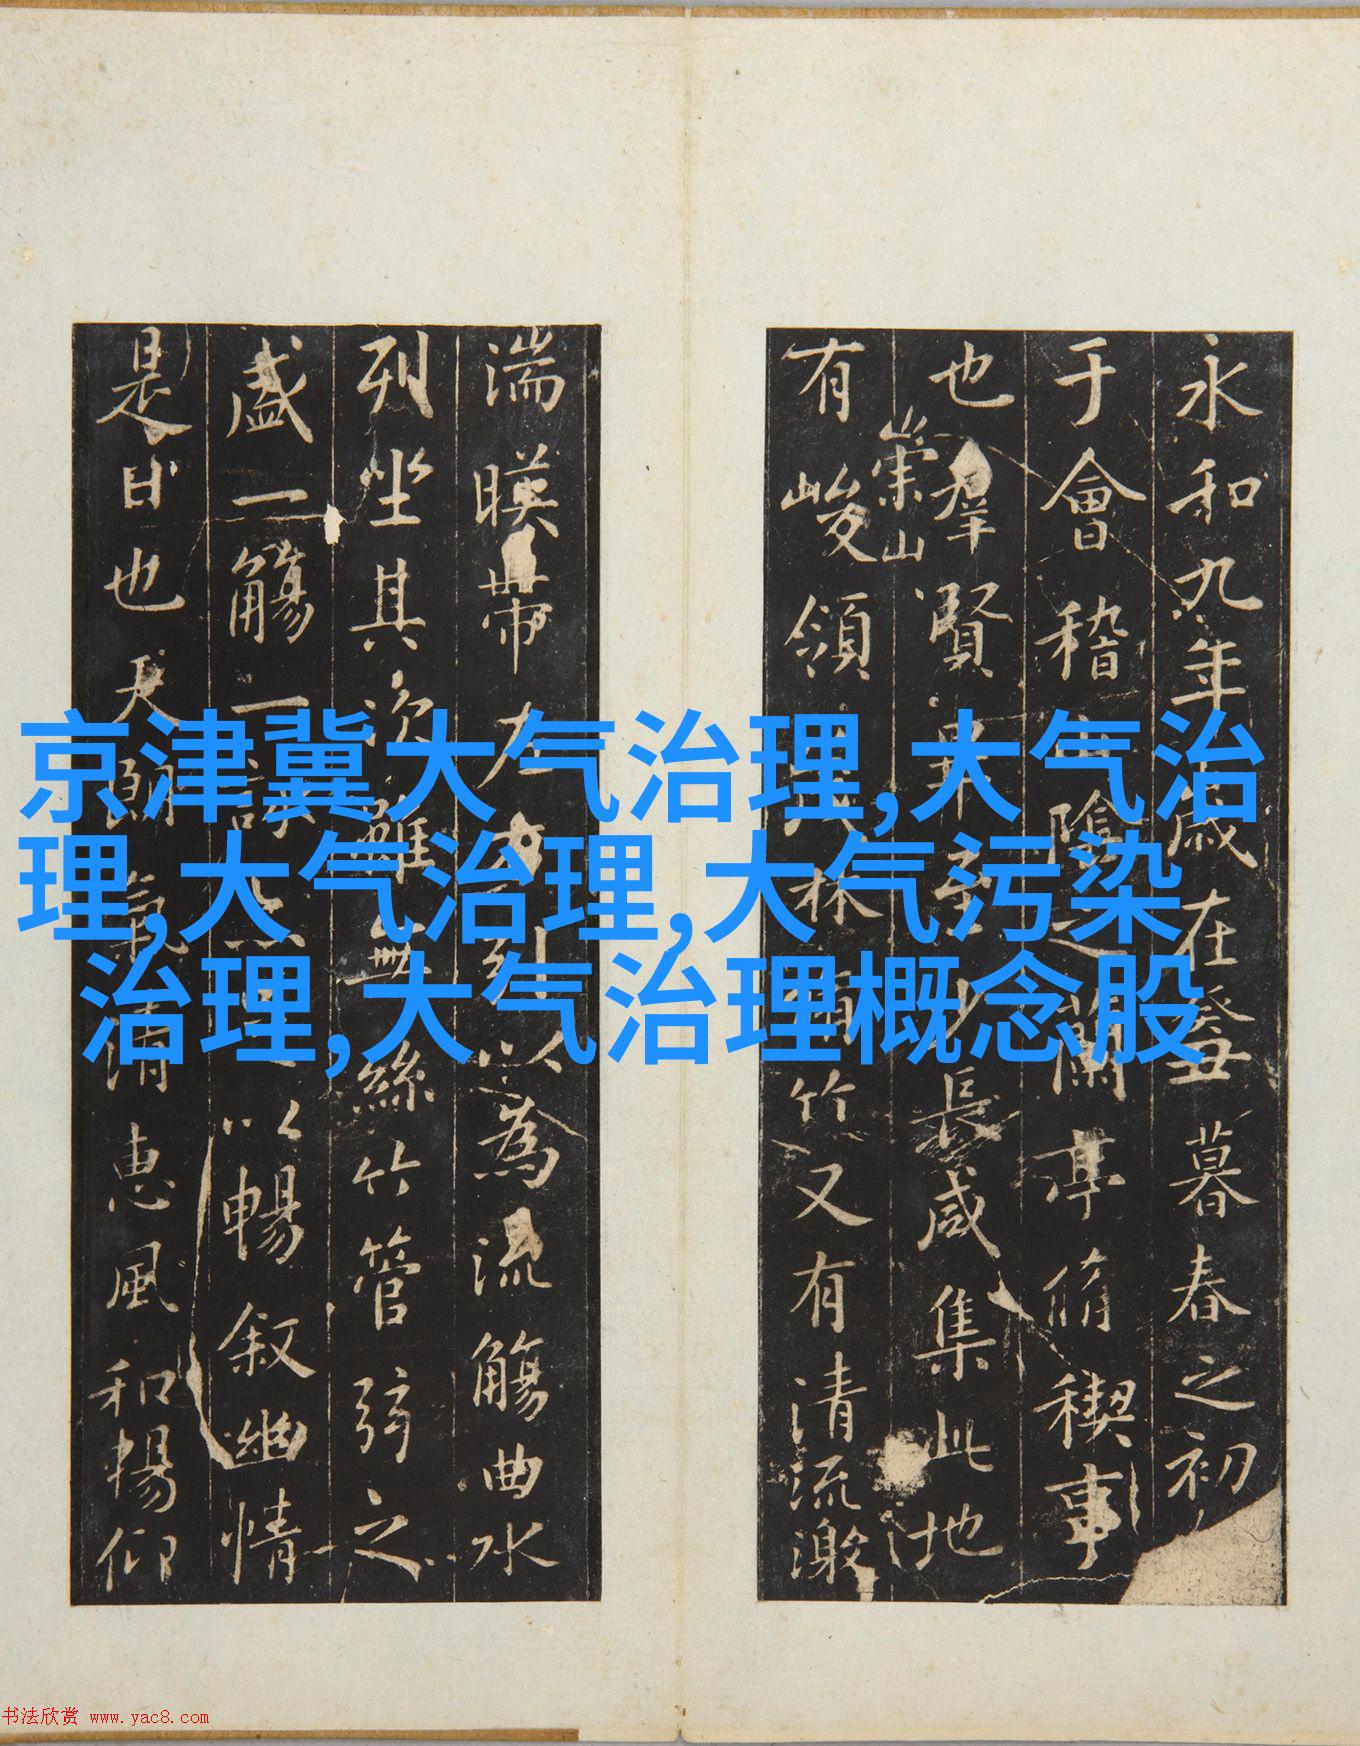 永和九年歲在癸丑暮春之初
于會稽山陰之蘭亭脩稧事
也羣賢畢至少長咸集此地
有崇山峻領茂林脩竹又有清流激
湍暎帶左右引以為流觴曲水
列坐其次雖無絲竹管弦之
盛一觴一詠亦足以暢叙幽情
是日也天朗氣清惠風和暢仰
京津冀大气治理,大气治
理,大气治理,大气污染
治理,大气治理概念股
书法欣赏 www.yac8.com